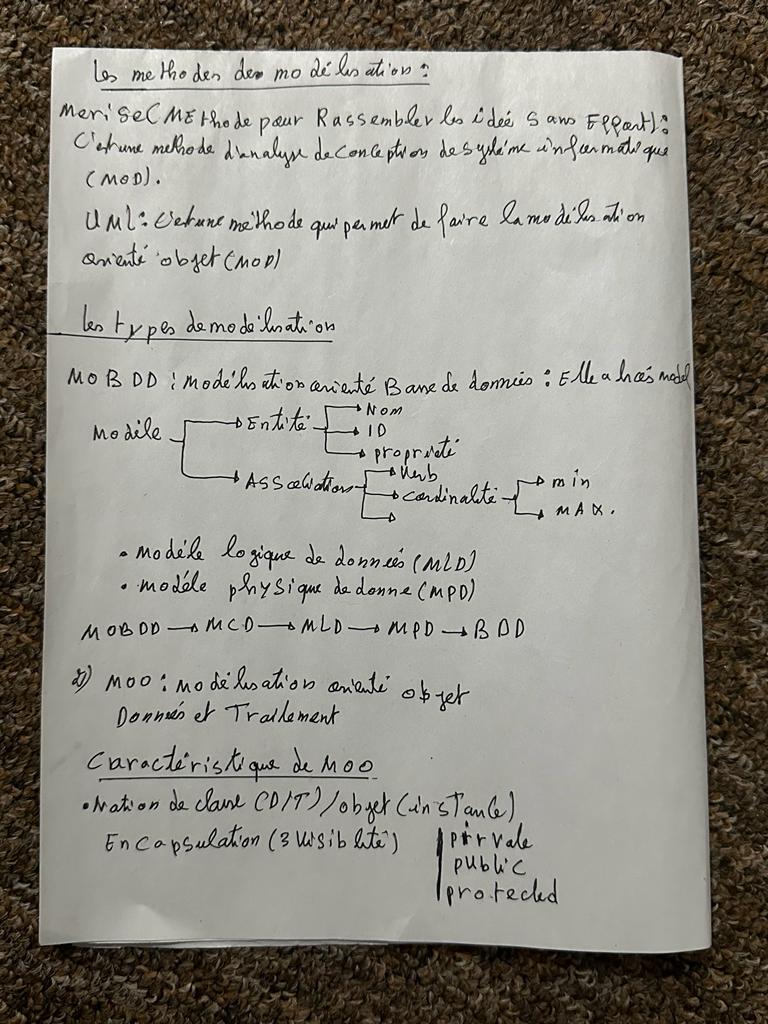 Les methodes de modélisation :
MeriSe (MEthode pour Rassembler les idéé Sans Effort) :
C'est une methode d'analyse de conception de système informatique
(MOD).
UML : C'est une méthode qui permet de faire la modélisation
orienté objet (MOD)
Les types de modélisation
MOBDD : modélisation orienté Base de données : Elle a trois model
Modèle → Entité → Nom
→ ID
→ propriété
→ Association → Verb
→ cardinalité → min
→ MAX.
• modéle logique de données (MLD)
• modéle physique de donne (MPD)
MOBDD → MCD → MLD → MPD → BDD
2) MOO : modélisation orienté objet
Données et Traitement
Caractéristique de MOO
• Nation de classe (D/T) / objet (instance)
Encapsulation (3 visibilité) | pirvale
public
protected